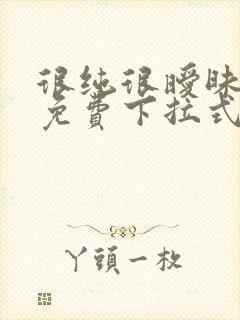 很纯很暧昧
免費下拉式
丫頭一枚